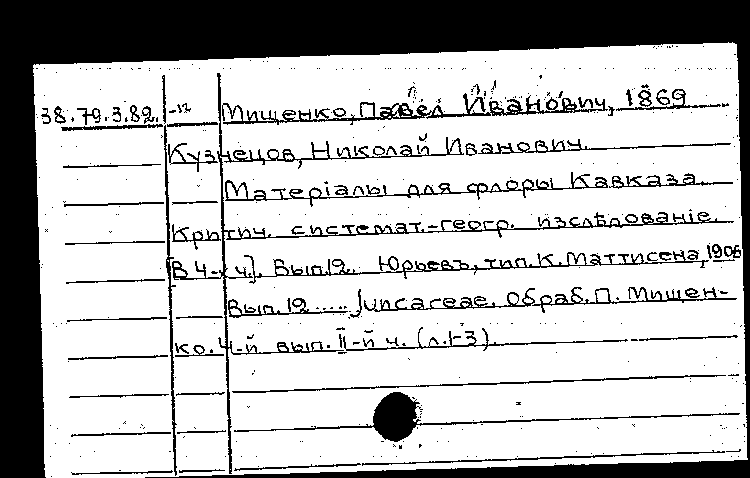 38.79.3.82. -12 Мищенко, Павел Иванович, 1869
Кузнецов, Николай Иванович.
Матерiалы для флоры Кавказа.
Критич. системат.-геогр. изслѣдованiе.
[В 4-х ч]. Вып.12. Юрьевъ, тип. К. Маттисена, 1906
Вып. 12 ..... Juncaceae. Обраб. П. Мищен-
ко. 4-й вып. II-й ч. (л.1-3).